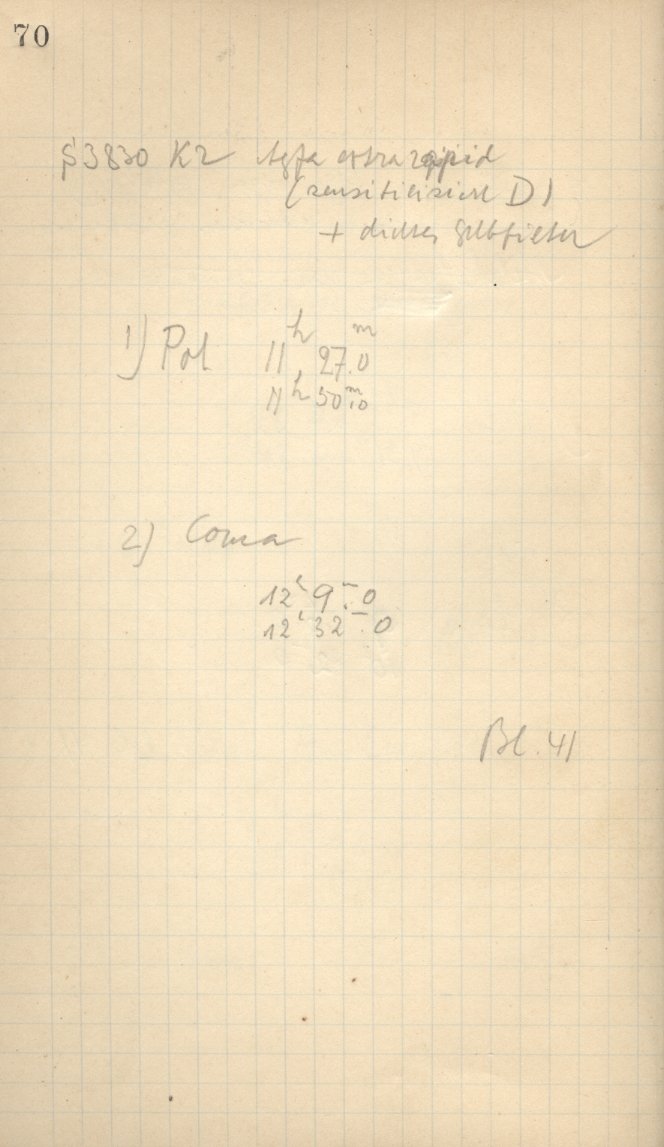 70
S3830 K2 Agfa extrarapid
(sensitivisiert D)
+ dichtes Gelbfilter
1) Pol 11h 27m.0
11h 50m.0
2) Coma
12h 9m.0
12h 32m.0
Bl. 41